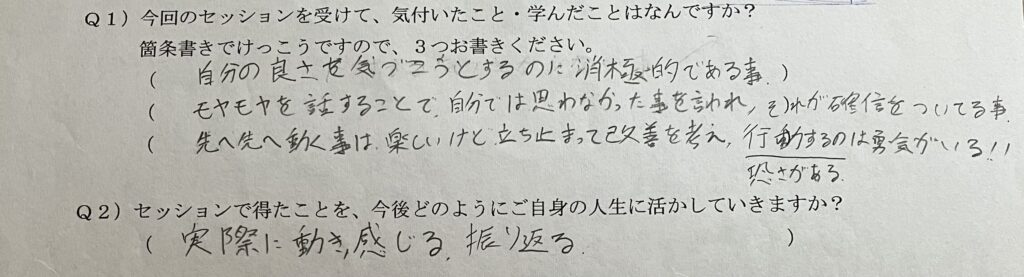 Q1）今回のセッションを受けて、気付いたこと・学んだことはなんですか？
箇条書きでけっこうですので、３つお書きください。
（　自分の良さを気づこうとするのに消極的である事　）
（　モヤモヤを話することで、自分では思わなかった事を言われ、それが確信をついてる事.
（　先へ先へ動く事は、楽しいけど、立ち止まって改善を考え、行動するのは勇気がいる!!
恐さがある.
Q2）セッションで得たことを、今後どのようにご自身の人生に活かしていきますか？
（　実際に動き、感じる、振り返る.　）